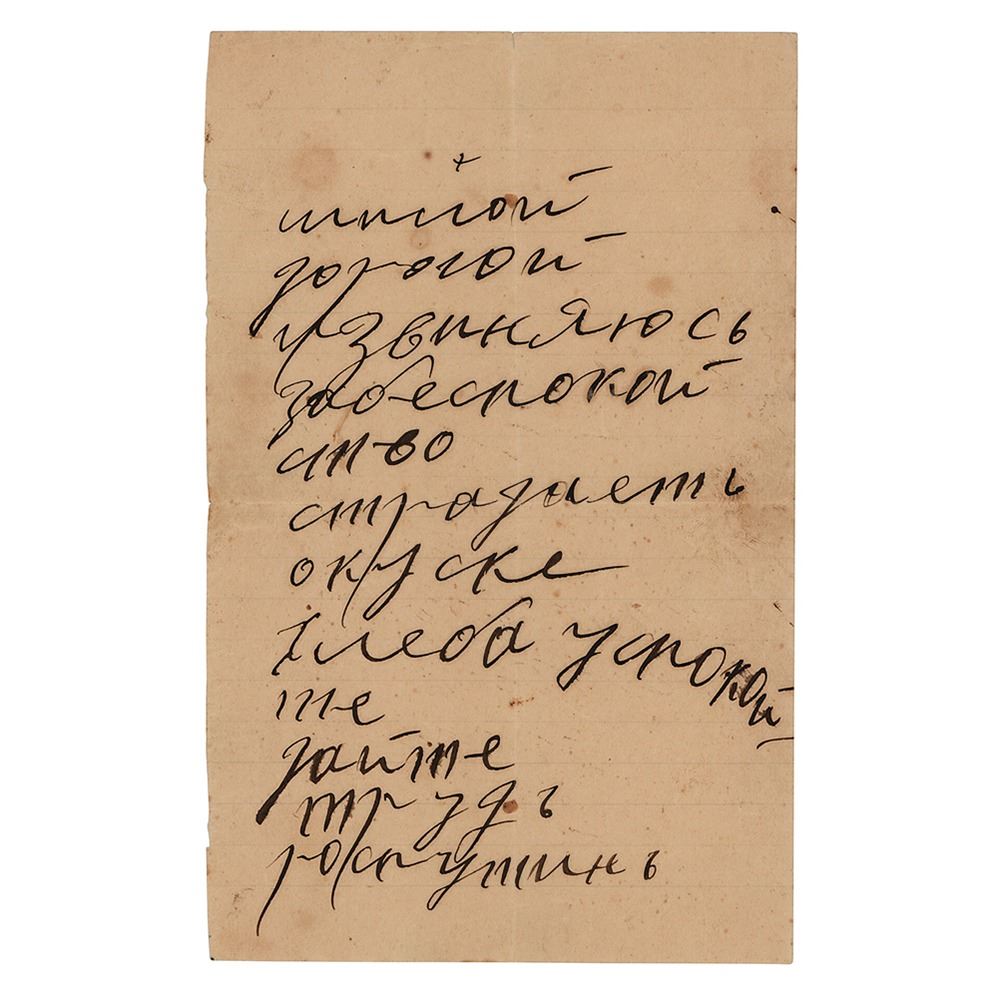 +
милой
дорогой
извиняюсь
забеспокой
ство
страдаеть
окуске
хлеба успокой
те
дайте
трудъ
роспутинъ